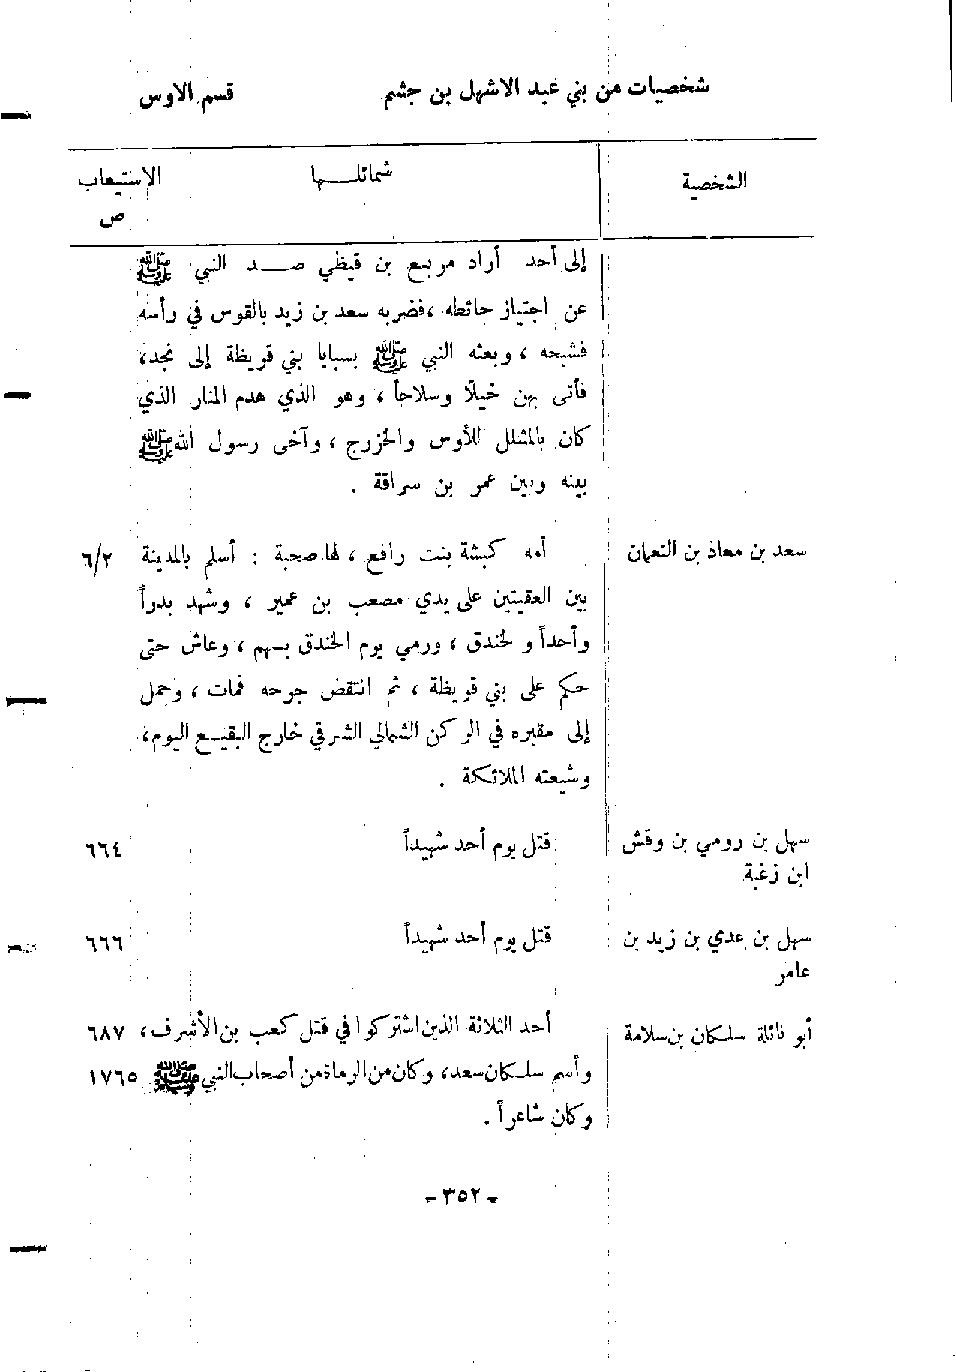 شخصيات من بني عبد الاشهل بن جشم قسم الاوس
الشخصية شمائلـــها الإستيعاب
ص
إلى أحد أراد مربع بن قيظي صـــد النبي ﷺ
عن اجتياز حائطه ، فضربه سعد بن زيد بالقوس في رأسه
فشجه ، وبعثه النبي ﷺ بسبايا بني قريظة إلى نجد ،
فأتى بهن خيلًا وسلاحاً ، وهو الذي هدم المنار الذي
كان بالمشلل للأوس والخزرج ، وآخى رسول الله ﷺ
بينه وبين عمر بن سراقة .
سعد بن معاذ بن النعمان أمه كبشة بنت رافع ، لها صحبة : أسلم بالمدينة ٦/٢
بين العقبتين على يدي مصعب بن عمير ، وشهد بدراً
وأحداً و لخندق ، ورمي يوم الخندق بسهم ، وعاش حتى
حكم على بني قريظة ، ثم انتقض جرحه فمات ، وحمل
إلى مقبره في الركن الشمالي الشرقي خارج البقيـع اليوم ،
وشيعته الملائكة .
سهل بن رومي بن وقش قتل يوم أحد شهيداً ٦٦٤
ابن زغبة
سهل بن عدي بن زيد بن قتل يوم أحد شهيداً ٦٦٦
عامر
أبو نائلة سلـكان بن سلامة أحد الثلاثة الذين اشتركوا في قتل كعب بن الأشرف ، ٦٨٧
وأسم سلـكان سعد ، وكان من الرماة من أصحاب النبي ﷺ ١٧٦٥
وكان شاعراً .
- ٣٥٢ -